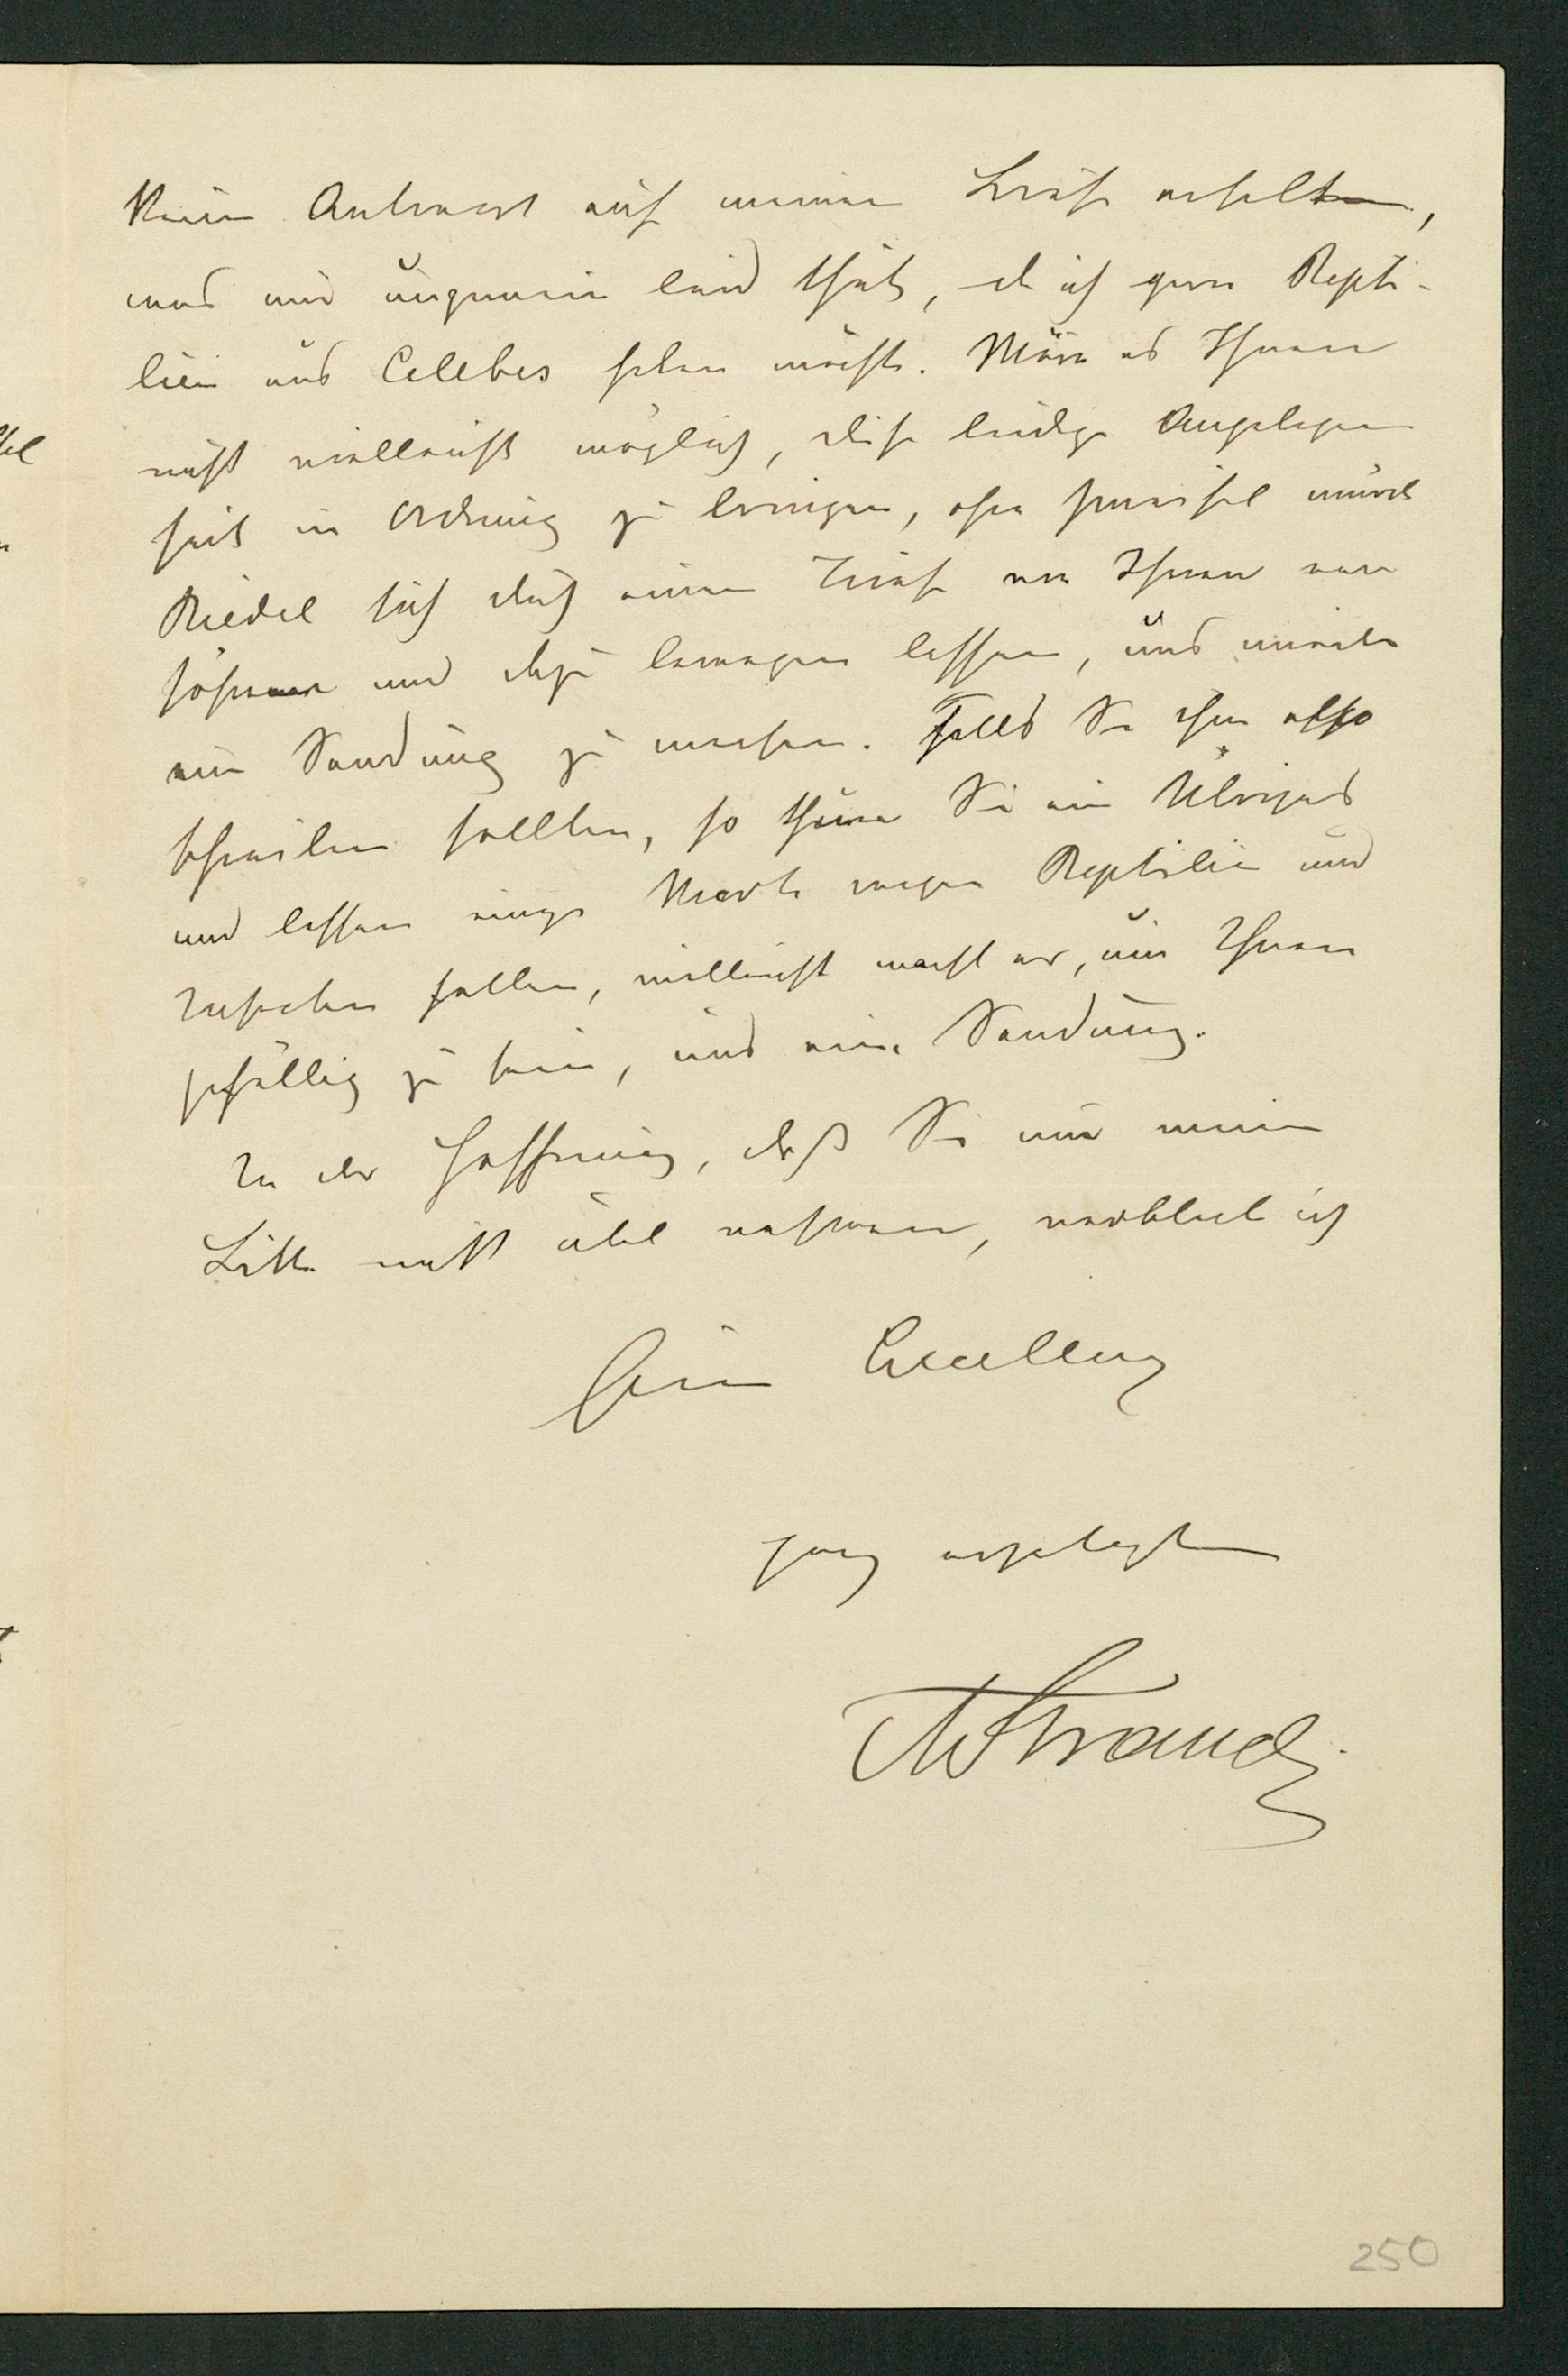 keine Antwort auf meinen Brief erhalten,
was mir ungemein leid thut, da ich gern Repti-
lien aus Celebes haben möchte. Wäre es Ihnen
nicht vielleicht möglich, diese leidige Angelegen
heit in Ordnung zu bringen, ohne Zweifel würde
Riedel sich durch einen Brief von Ihnen ver
söhnen und dazu bewegen lassen, uns wieder
eine Sendung zu machen. Falls Sie ihm also
schreiben sollten, so thuen Sie ein Übriges
und lassen einige Worte wegen Reptilien und
Insecten fallen, vielleicht macht er, um Ihnen
gefällig zu sein, uns eine Sendung.
In der Hoffnung, daß Sie mir meine
Bitte nicht übel nehmen, verbleibe ich
Eurer Excellenz
ganz ergebenster
AStrauch
250